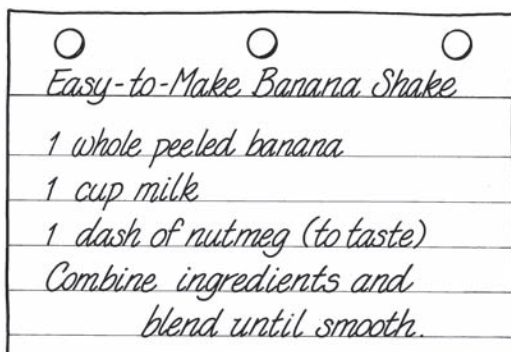 Easy-to-Make Banana Shake
1 whole peeled banana
1 cup milk
1 dash of nutmeg (to taste)
Combine ingredients and
blend until smooth.